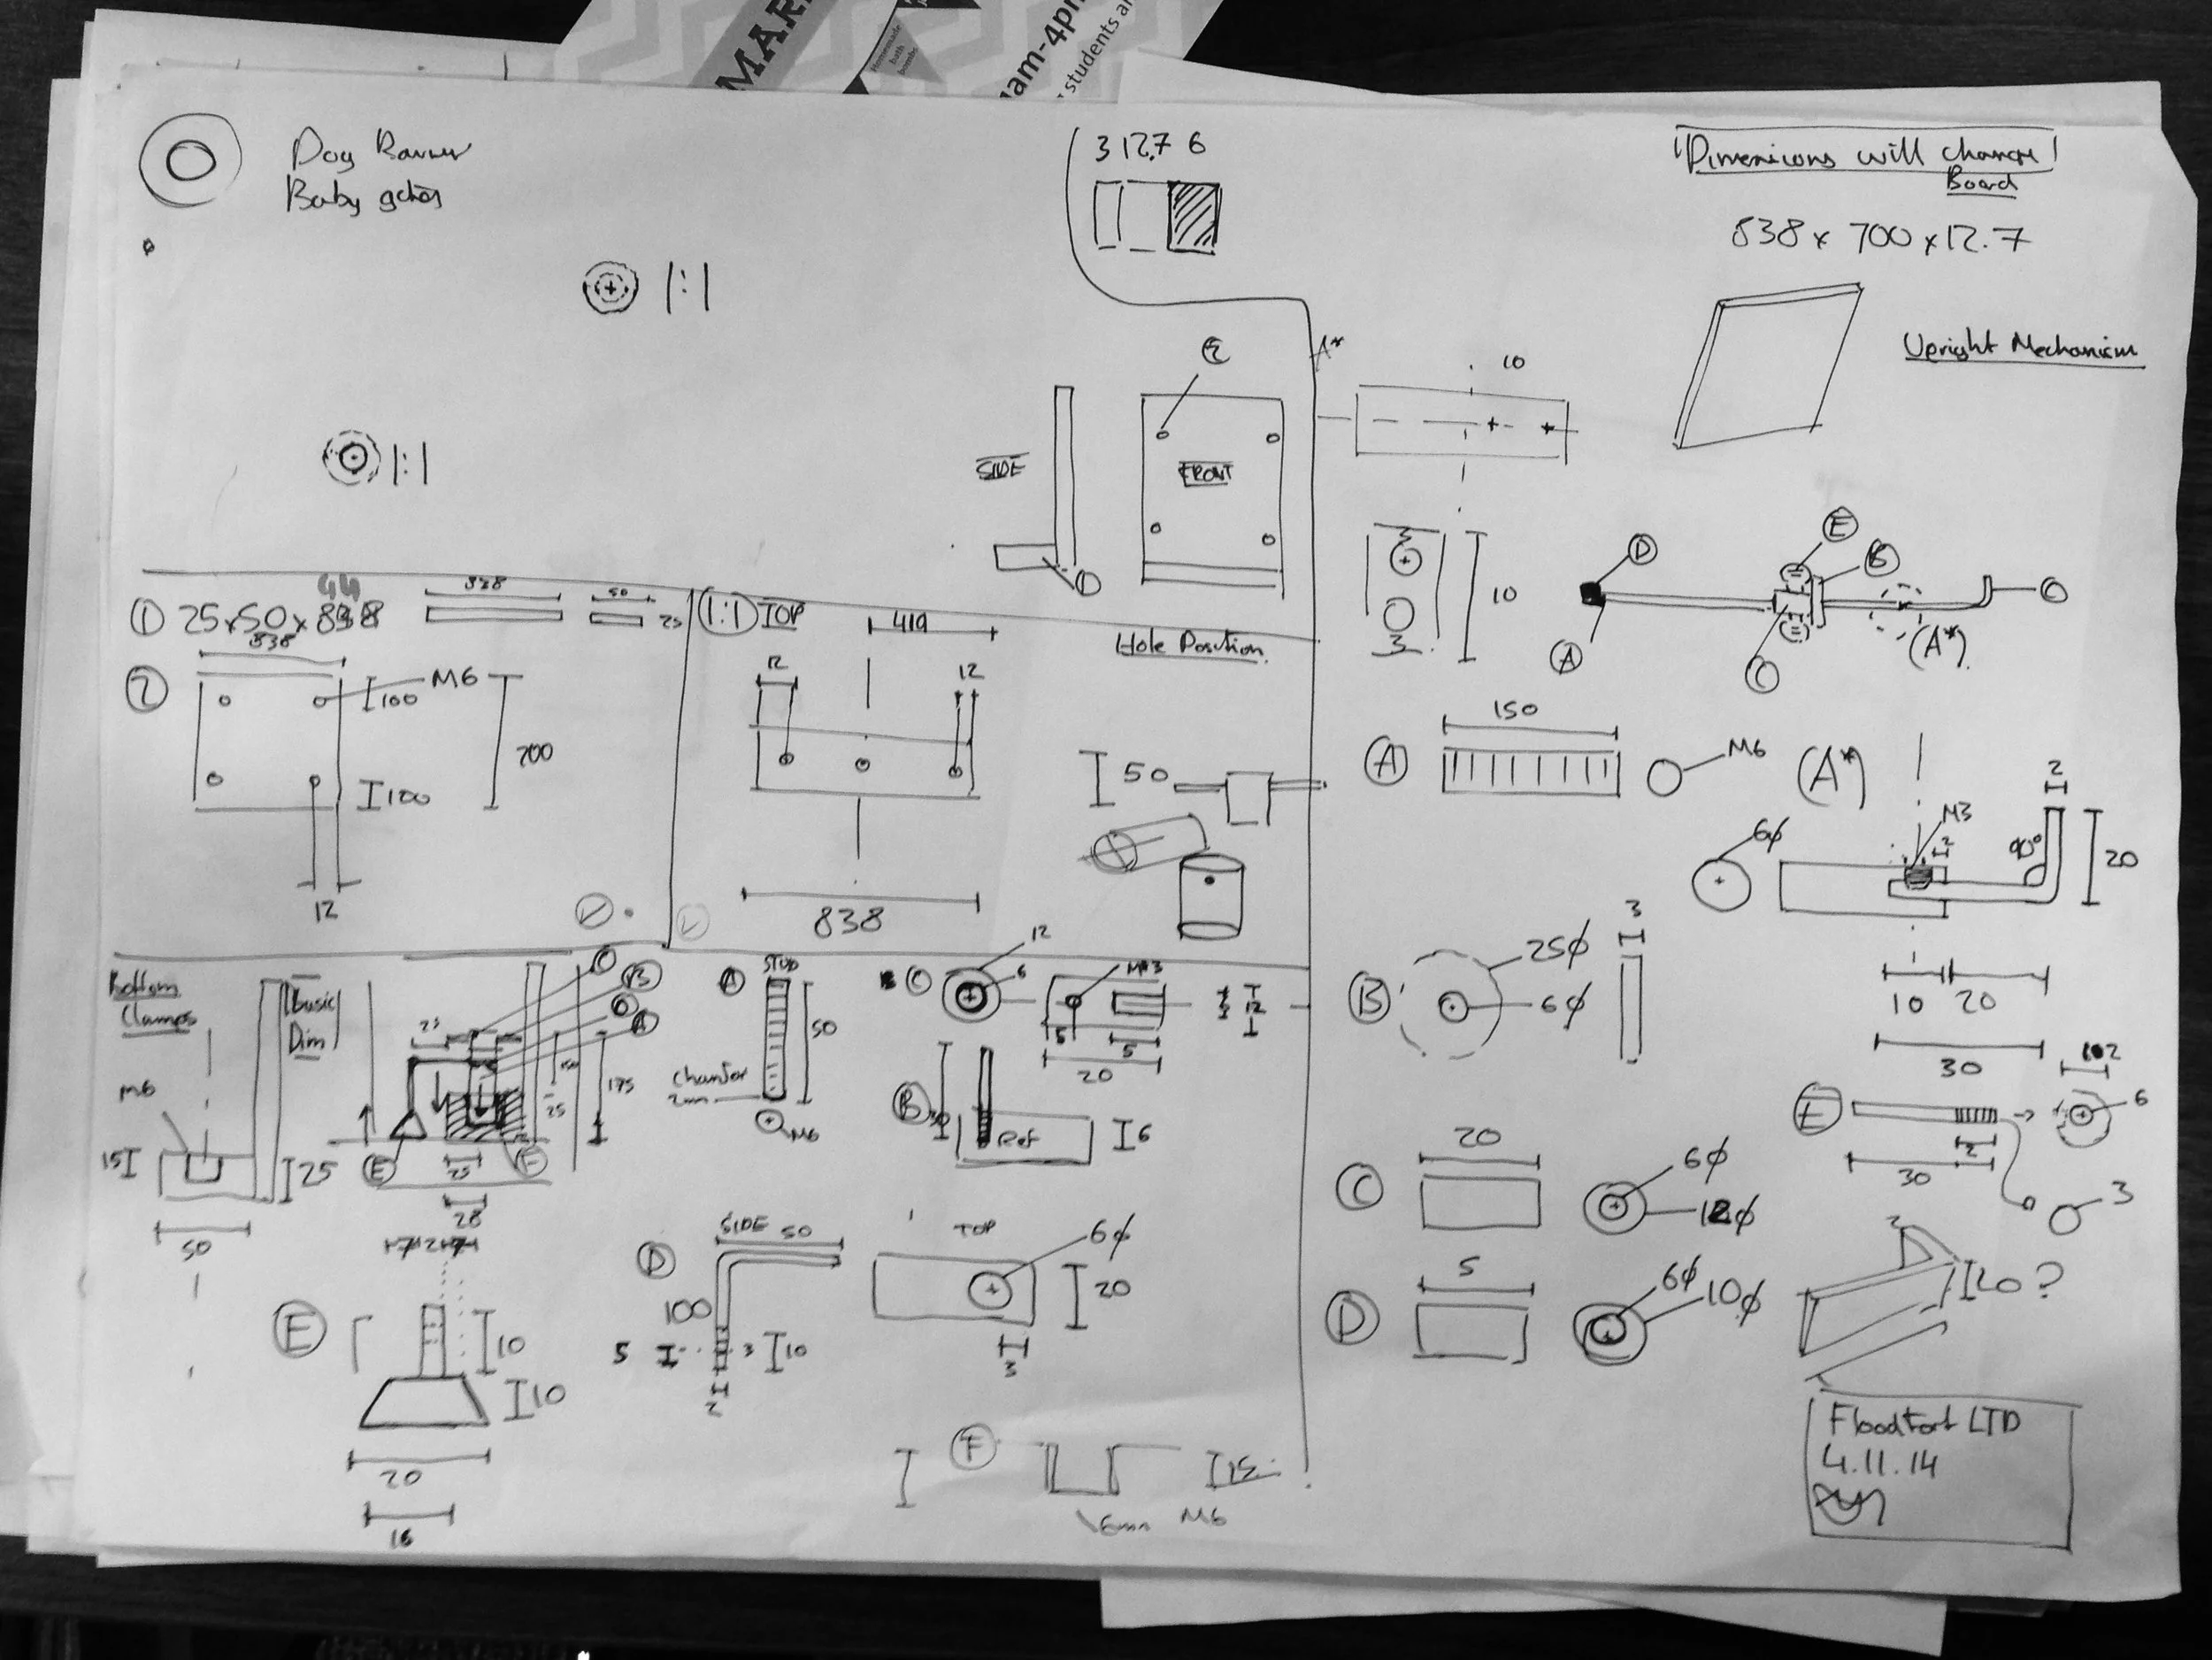 MAR
Homemade
bath
bombs
am-4pm
students a
Dog Barrier
Baby gates
1:1
1:1
3 12.7 6
Dimenions will change
Board
838 x 700 x 12.7
Upright Mechanism
2
A*
SIDE
FRONT
1
10
10
D
E
B
C
A
C
(A*)
44
① 25 x 50 x 838
838
50
25
②
838
M6
100
100
700
12
1:1 TOP
419
12
12
838
Hole Position
50
A
150
M6
(A*)
6ϕ
M3
2
2
90°
20
10 20
30
B
25ϕ
6ϕ
3
E
6
30
2
3
C
20
6ϕ
12ϕ
D
5
6ϕ
10ϕ
20?
Bottom
Clamps
Basic
Dim
M6
15
25
50
C
B
D
A
25
150
175
25
E
F
25
28
A
STUD
50
Chamfer
2mm
M6
C
12
6
5
5
20
12
B
Ref
6
E
10
10
20
16
D
SIDE 50
100
5
3
10
2
TOP
6ϕ
20
3
F
15
6mm M6
FloodFort LTD
4.11.14